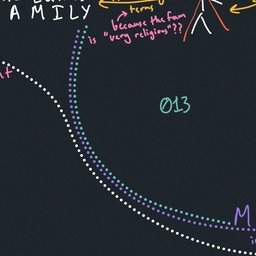 A MILY
terms
because the fam
is "very religious"??
013
M